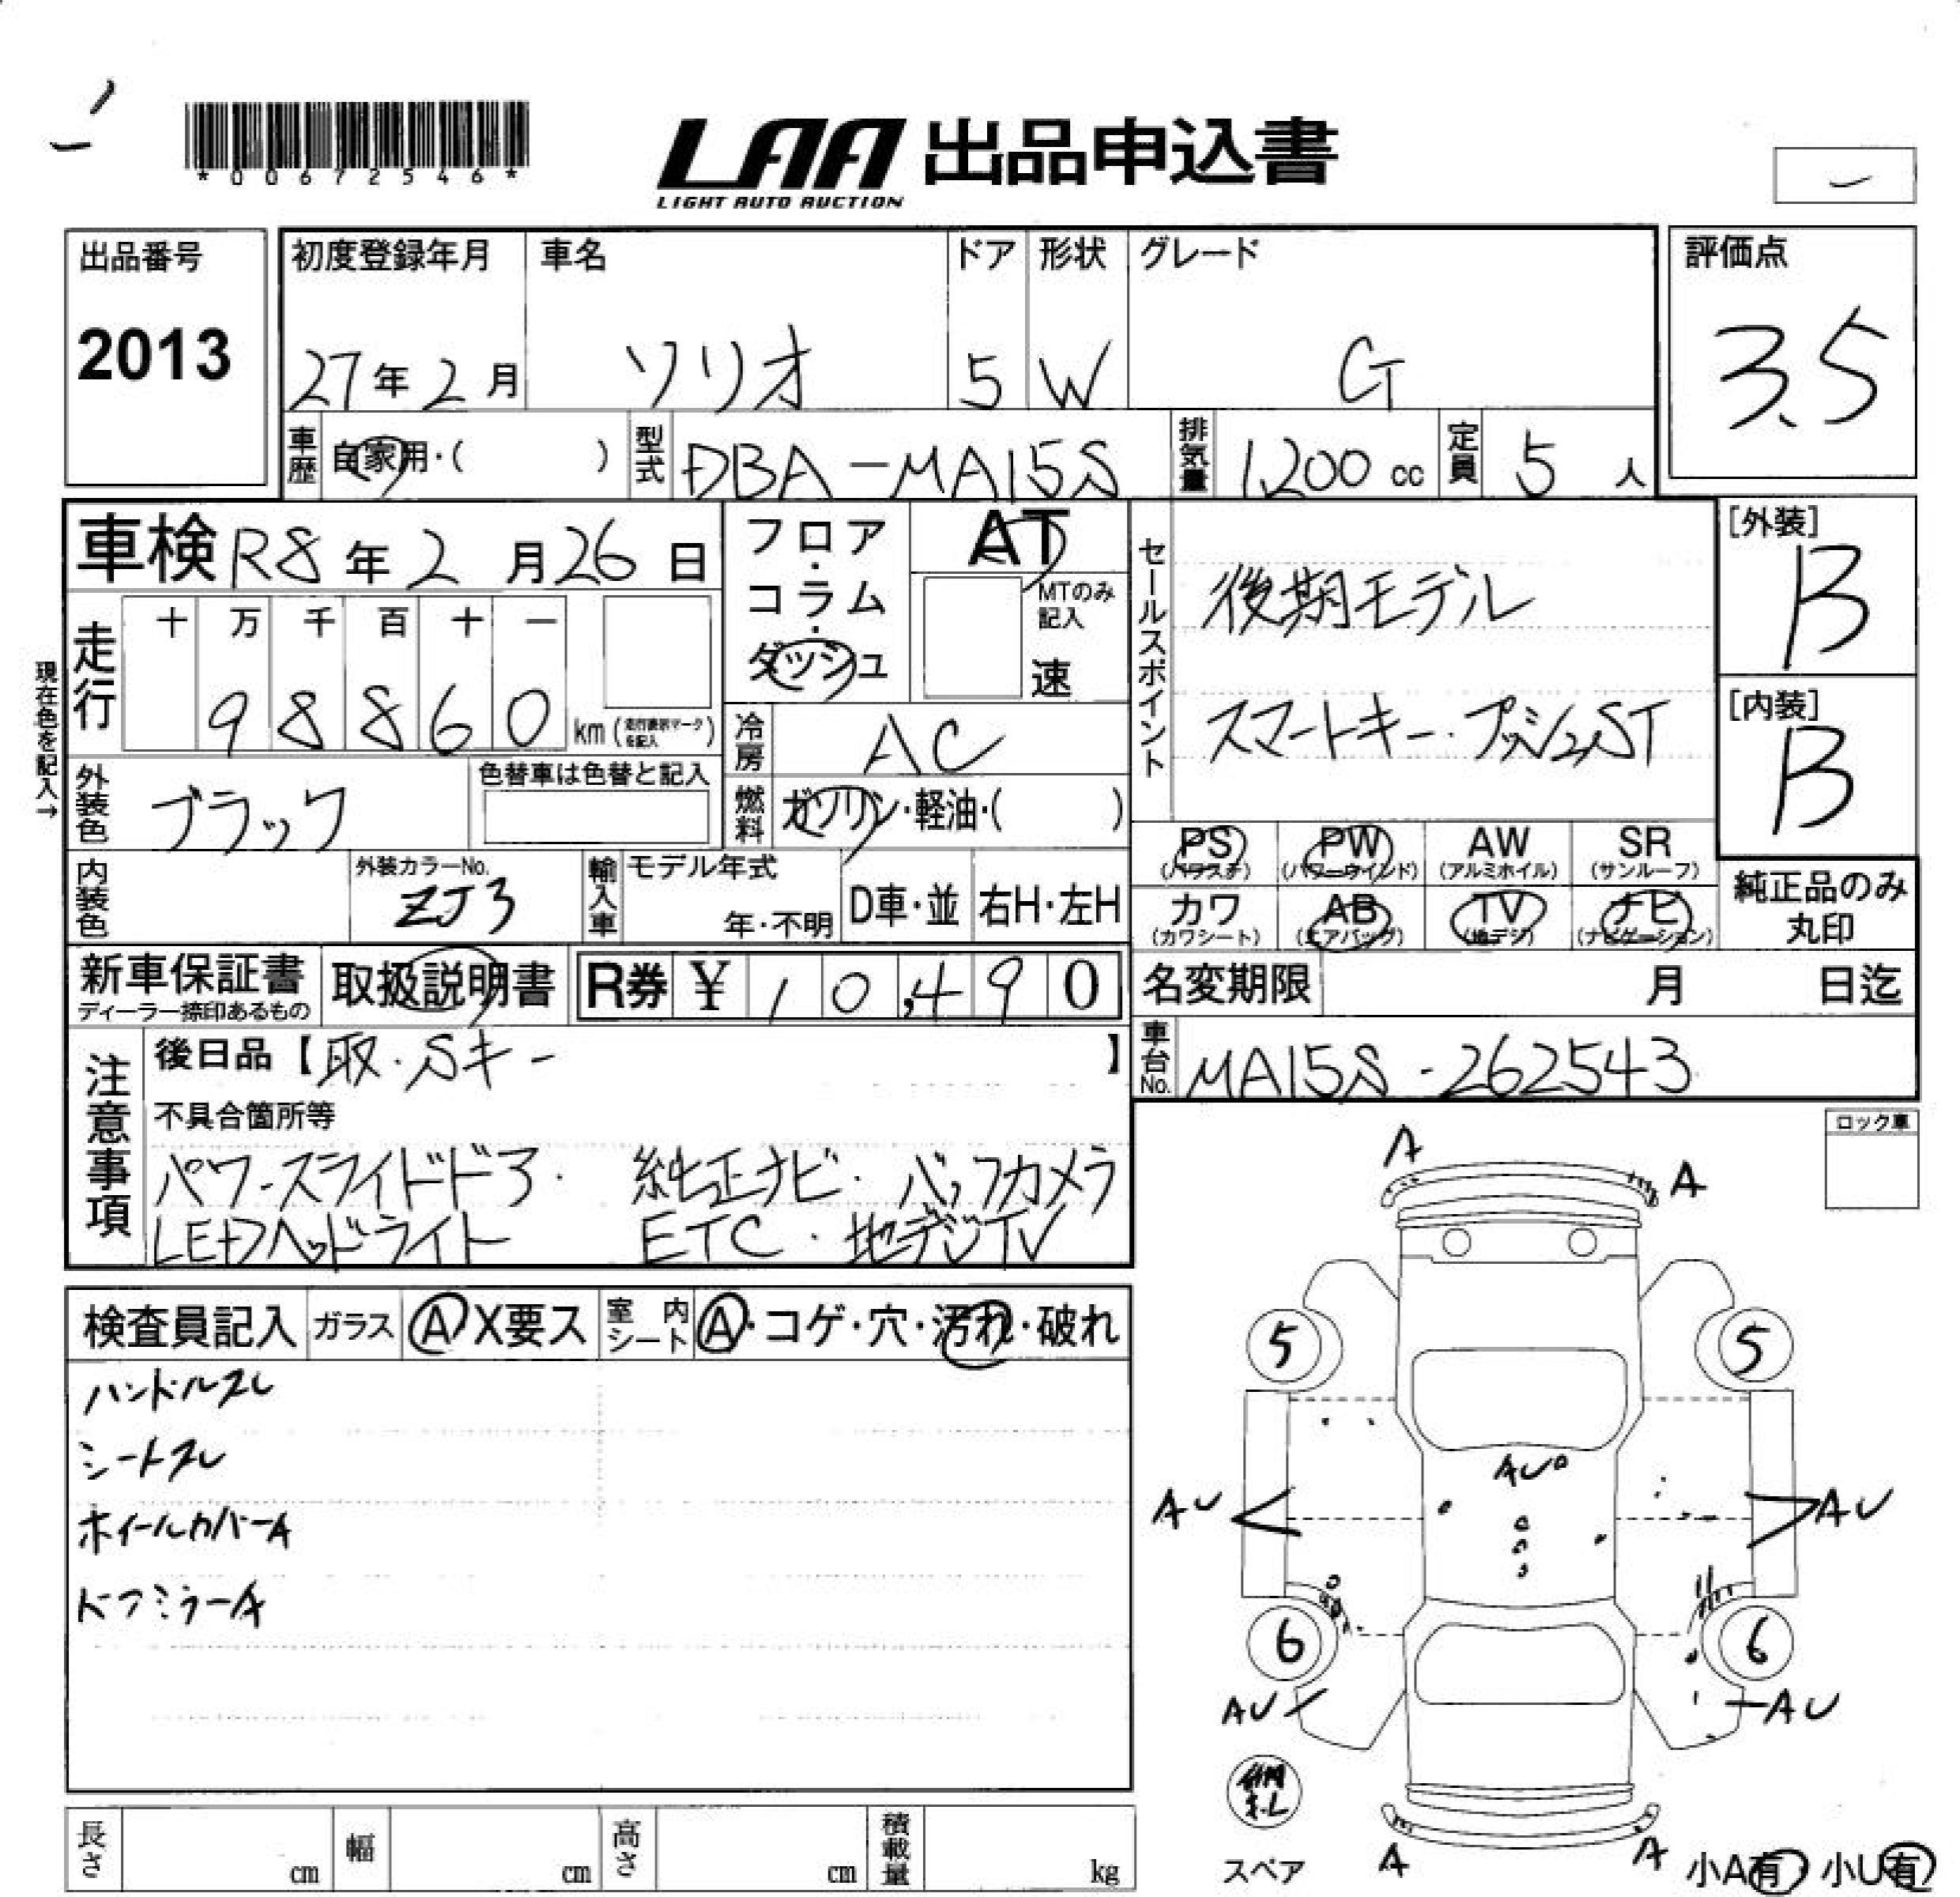 *00672546*
LAA 出品申込書
LIGHT AUTO AUCTION
出品番号
2013
初度登録年月
27年2月
車名
ソリオ
ドア
5
形状
W
グレード
G
評価点
3.5
車歴 自家用・( )
型式 DBA-MA15S
排気量 1,200 cc
定員 5 人
車検 R8年2月26日
フロア・コラム・ダッシュ
AT
MTのみ記入
速
セールスポイント
後期モデル
スマートキー・プッシュST
[外装]
B
[内装]
B
現在色を記入→
走行 十 万 千 百 十 一
98860 km (走行表示マークを記入)
冷房 AC
外装色 ブラック
色替車は色替と記入
燃料 ガソリン・軽油・( )
PS (パワステ)
PW (パワーウインド)
AW (アルミホイル)
SR (サンルーフ)
カワ (カワシート)
AB (エアバッグ)
TV (地デジ)
ナビ (ナビゲーション)
純正品のみ丸印
内装色
外装カラーNo.
ZJ3
輸入車
モデル年式
年・不明
D車・並
右H・左H
新車保証書
ディーラー捺印あるもの
取扱説明書
R券 ¥ 10,490
名変期限 月 日迄
注意事項
後日品【取・Sキー 】
車台No. MA15S-262543
不具合箇所等
パワースライドドア・ 純正ナビ・バックカメラ
LEDヘッドライト ETC・地デジTV
ロック車
検査員記入
ガラス A X要ス
室内シート A・コゲ・穴・汚れ・破れ
ハンドルスレ
シートスレ
ホイールカバーA
ドアミラーA
A
A
5
5
AU
AU
AU
6
6
AU
AU
スペア
A
A
小A有・小U有
長さ cm
幅 cm
高さ cm
積載量 kg